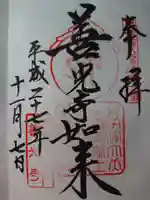 奉拝
善光寺如来
平成二十七年
十一月七日